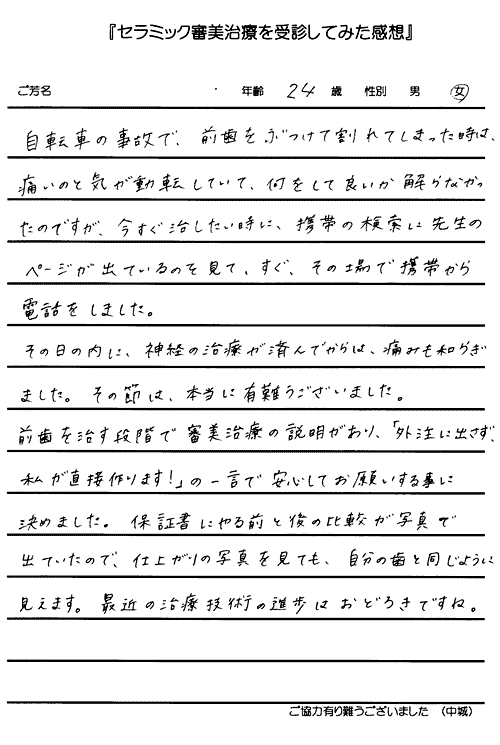 『セラミック審美治療を受診してみた感想』
ご芳名 年齢 24 歳 性別 男 女
自転車の事故で、前歯をぶつけて割れてしまった時は、
痛いのと気が動転していて、何をして良いか解らなかっ
たのですが、今すぐ治したい時に、携帯の検索に先生の
ページが出ているのを見て、すぐ、その場で携帯から
電話をしました。
その日の内に、神経の治療が済んでからは、痛みも和らぎ
ました。その節は、本当に有難うございました。
前歯を治す段階で審美治療の説明があり、「外注に出さず、
私が直接作ります!」の一言で安心してお願いする事に
決めました。保証書にやる前と後の比較が写真で
出ていたので、仕上がりの写真を見ても、自分の歯と同じように
見えます。最近の治療技術の進歩はおどろきですね。
ご協力有り難うございました （中城）